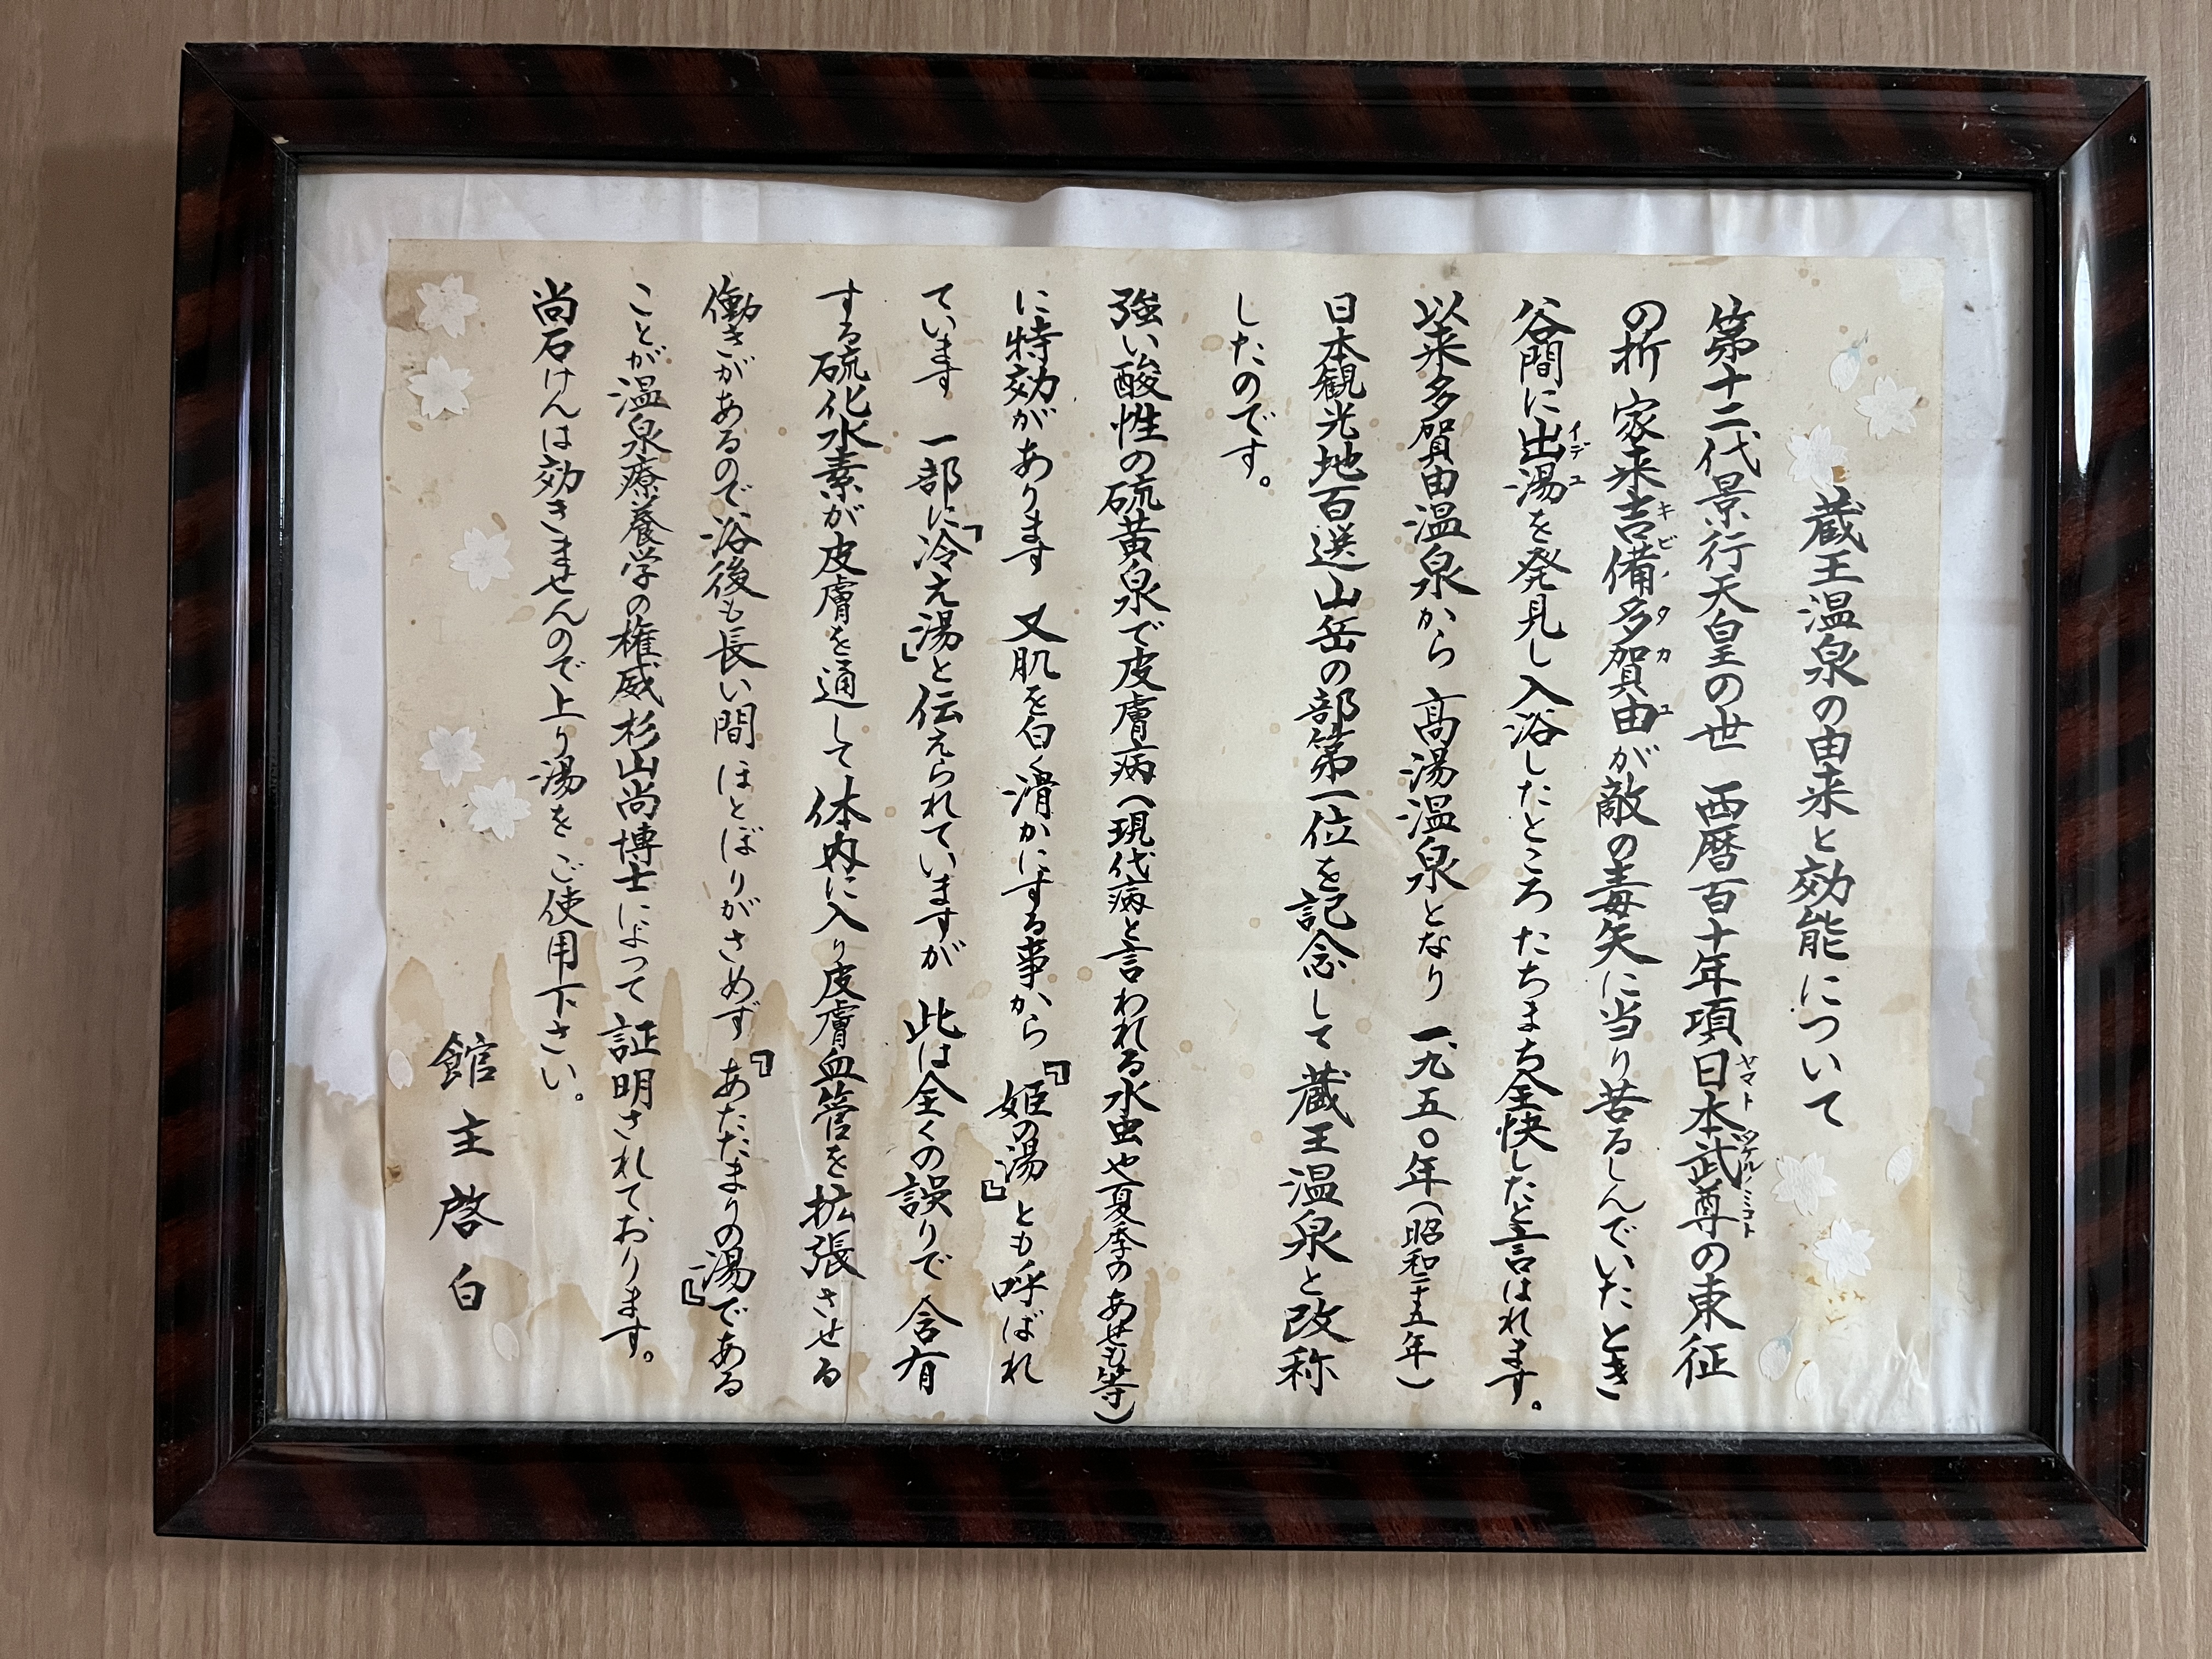 蔵王温泉の由来と効能について
第十二代景行天皇の世 西暦百十年項日本武尊の東征
ヤマトタケルノミコト
の折 家来吉備多賀由が敵の毒矢に当り苦るしんでいたとき
キビノタカユ
谷間に出湯を発見し入浴したところたちまち全快したと言はれます。
イデユ
以来多賀由温泉から 高湯温泉となり 一九五〇年(昭和二十五年)
日本観光地百選山岳の部第一位を記念して蔵王温泉と改称
したのです。
強い酸性の硫黄泉で皮膚病(現代病と言われる水虫や夏季のあせも等)
に特効があります 又肌を白く滑かにする事から『姫の湯』とも呼ばれ
ています 一部に「冷え湯」と伝えられていますが 此は全くの誤りで含有
する硫化水素が皮膚を通して体内に入り皮膚血管を拡張させる
働きがあるので浴後も長い間ほとぼりがさめず『あたたまりの湯』である
ことが温泉療養学の権威杉山尚博士によって証明されております。
尚石けんは効きませんので上り湯をご使用下さい。
館主啓白